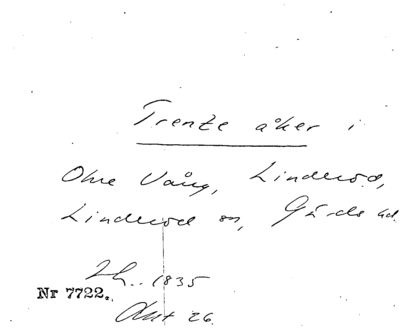 Trente åker i
Ohre Vång, Linderöd,
Linderöd sn, Gärds hd.
Th.. 1835
Nr 7722.
Akt 26